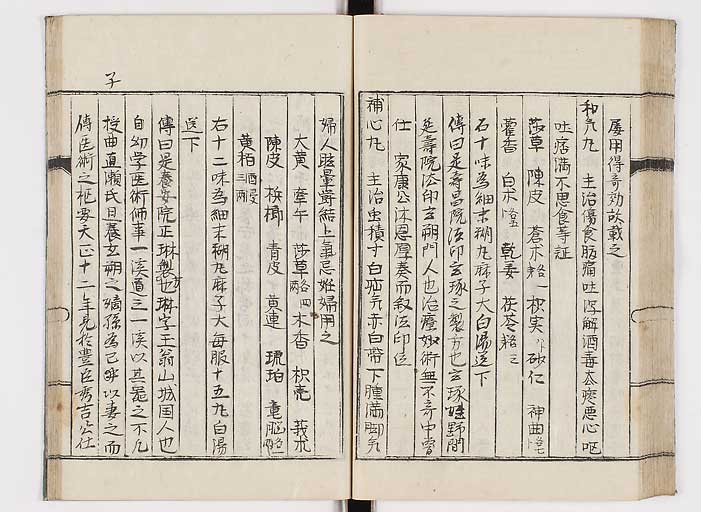 屡用得奇効故載之
和気丸　主治傷食腹痛吐瀉解酒毒去痰悪心嘔
吐痞満不思食等証
莎草　陳皮　蒼朮　枳実　砂仁　神曲
藿香　白朮　乾姜　茯苓
右十味為細末糊丸麻子大白湯送下
傳曰是壽昌院法印玄琢之製方也玄琢野間
延壽院法印玄朔門人也治療奴術無不奇中嘗
仕　家康公沐恩厚奏而叙法印位
補心丸　主治虫積寸白疝気赤白帯下腫満脚気
婦人眩暈欝結上気忌妊婦用之
大黄　牽牛　莎草　木香　枳壳　莪朮
陳皮　梹榔　青皮　黄連　琥珀　竜脳
黄栢
右十二味為細末糊丸麻子大毎服十五丸白湯
送下
傳曰是養安院正琳製方也琳字玉翁山城国人也
自幼学医術師事一溪道三一溪以其器之不凡
授曲直瀬氏且養玄朔之嫡孫為己呼以妻之而
傳医術之枢要天正十二年見於豊臣秀吉公仕
子